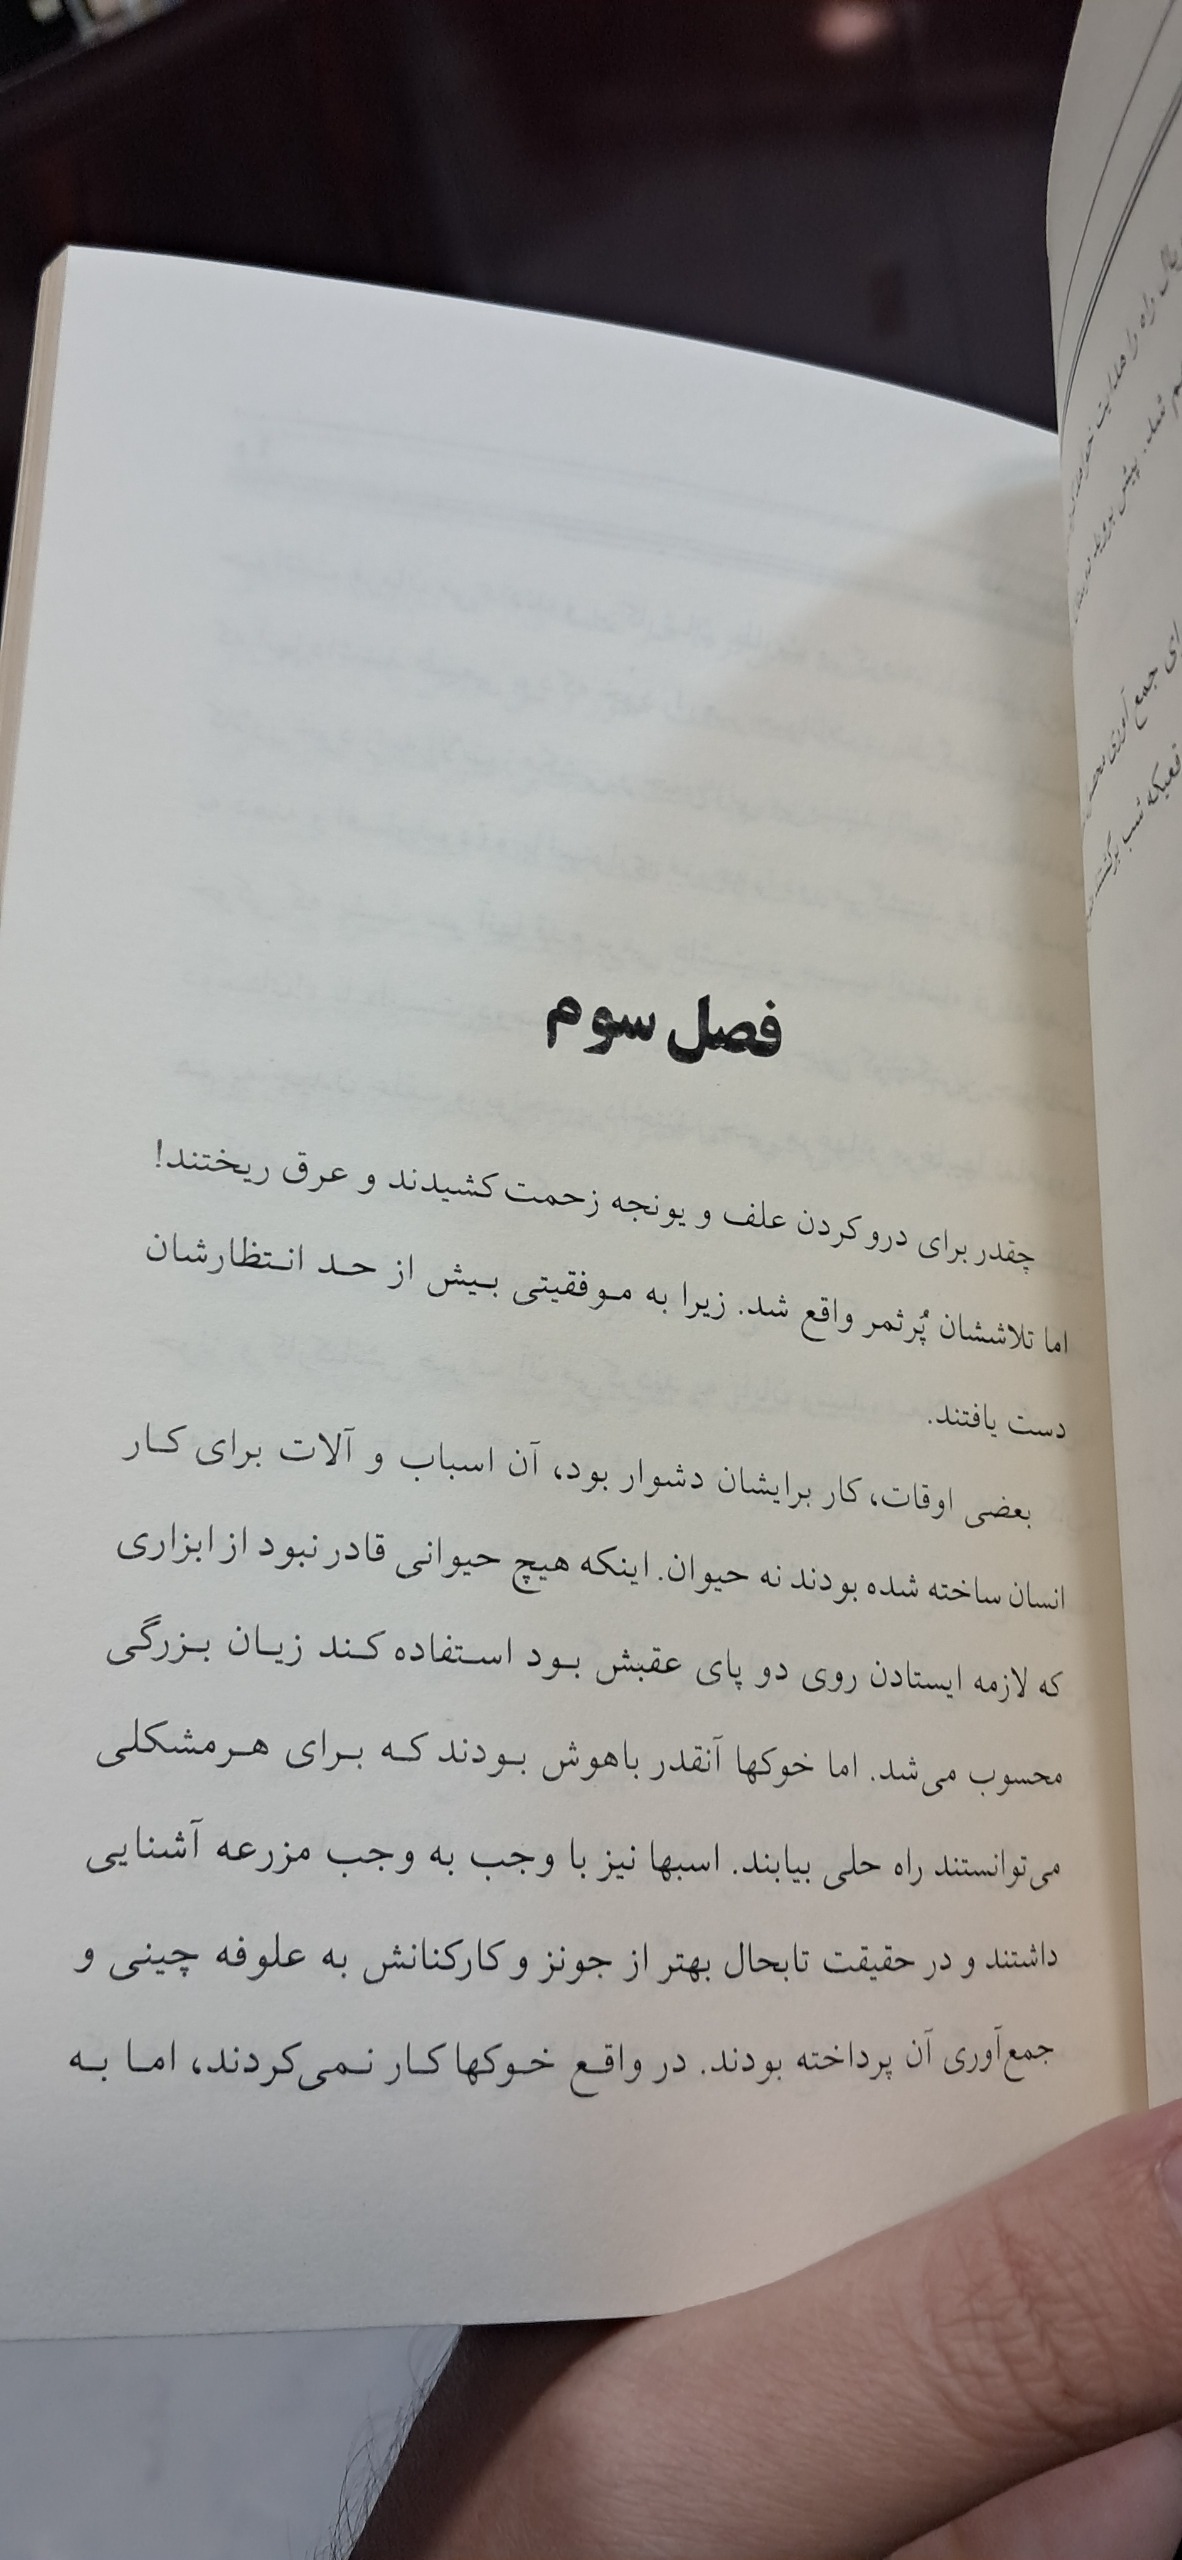 فصل سوم
چقدر برای درو کردن علف و یونجه زحمت کشیدند و عرق ریختند!
اما تلاششان پُرثمر واقع شد. زیرا به موفقیتی بیش از حد انتظارشان
دست یافتند.
بعضی اوقات، کار برایشان دشوار بود، آن اسباب و آلات برای کار
انسان ساخته شده بودند نه حیوان. اینکه هیچ حیوانی قادر نبود از ابزاری
که لازمه ایستادن روی دو پای عقبش بود استفاده کند زیان بزرگی
محسوب می‌شد. اما خوکها آنقدر باهوش بودند که برای هرمشکلی
می‌توانستند راه حلی بیابند. اسبها نیز با وجب به وجب مزرعه آشنایی
داشتند و در حقیقت تابحال بهتر از جونز و کارکنانش به علوفه چینی و
جمع‌آوری آن پرداخته بودند. در واقع خوکها کار نمی‌کردند، اما به
راه را هدایت
شد. پیش بروید
جمع آوری
شب برگشتند